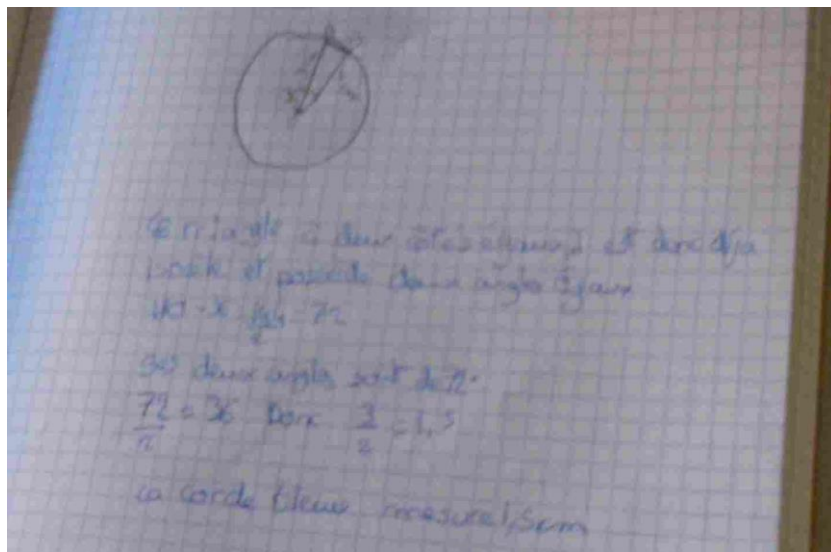 triangle a deux côtés égaux, est donc déja
et possède deux angle égaux
180 - 36 = 144 = 72
2
deux angles sont de 72°
72 = 36 Donc 3 = 1,5
2 2
La corde bleue mesure 1,5 cm